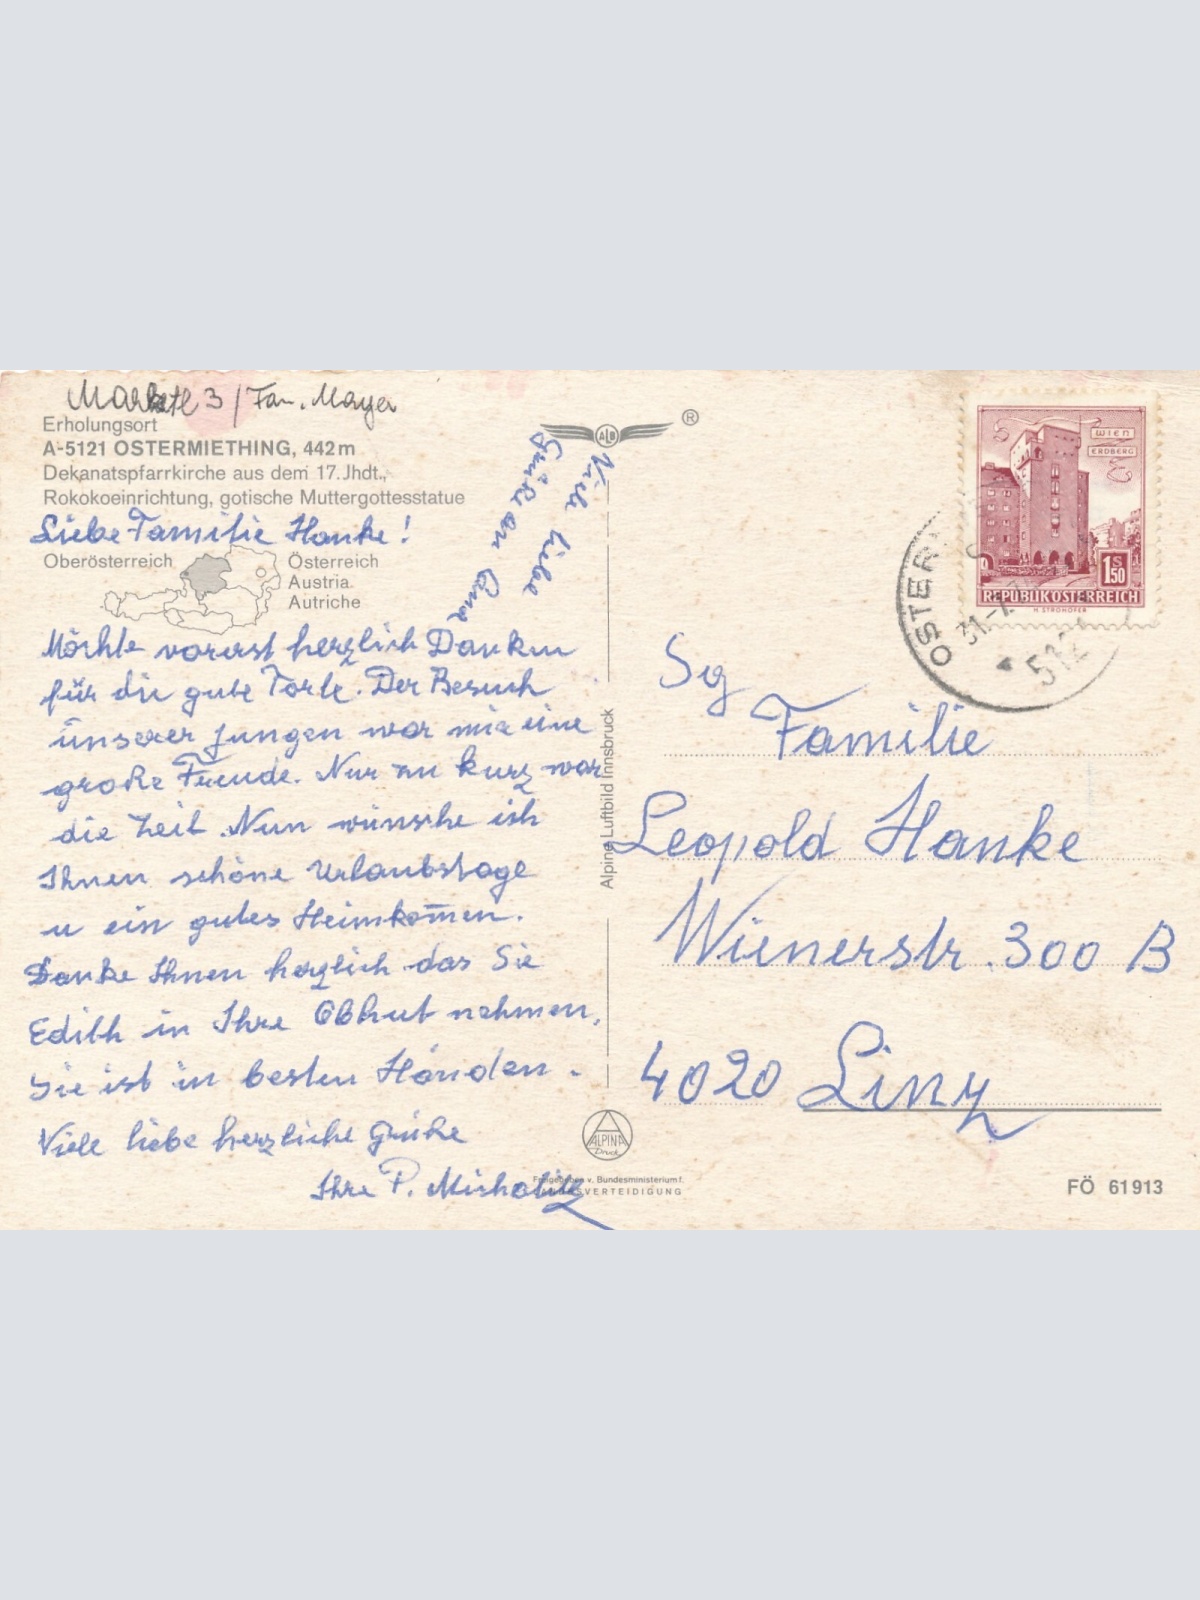 3 / Fam. Mayer
Erholungsort
A-5121 OSTERMIETHING, 442 m
Dekanatspfarrkirche aus dem 17. Jhdt.,
Rokokoeinrichtung, gotische Muttergottesstatue
Liebe Familie Hanke!
Oberösterreich
Österreich
Austria
Autriche
Möchte vorerst herzlich Danken
für die gute Torte. Der Besuch
unserer Jungen war mir eine
große Freude. Nur zu kurz war
die Zeit. Nun wünsche ich
Ihnen schöne Urlaubstage
u ein gutes Heimkom̄en.
Danke Ihnen herzlich das Sie
Edith in Ihre Obhut nehmen,
Sie ist in besten Händen.
Viele liebe herzliche Grüße
Ihre P.
Viele liebe
Grüße an
ALB
®
Alpine Luftbild Innsbruck
ALPINA
Druck
Freigegeben v. Bundesministerium f.
LANDESVERTEIDIGUNG
WIEN
ERDBERG
1 S
50
REPUBLIK ÖSTERREICH
H. STROHOFER
OSTER
31.-7.
512
Sg
Familie
Leopold Hanke
Wienerstr. 300 B
4020 Linz
FÖ 61913